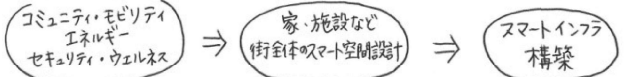 コミュニティ・モビリティ
エネルギー
セキュリティ・ウェルネス
⇒
家・施設など
街全体のスマート空間設計
⇒
スマートインフラ
構築